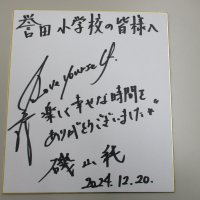 誉田小学校の皆様へ
Love yourself.
楽しく幸せな時間を
ありがとうございました
磯山純
2024.12.20.